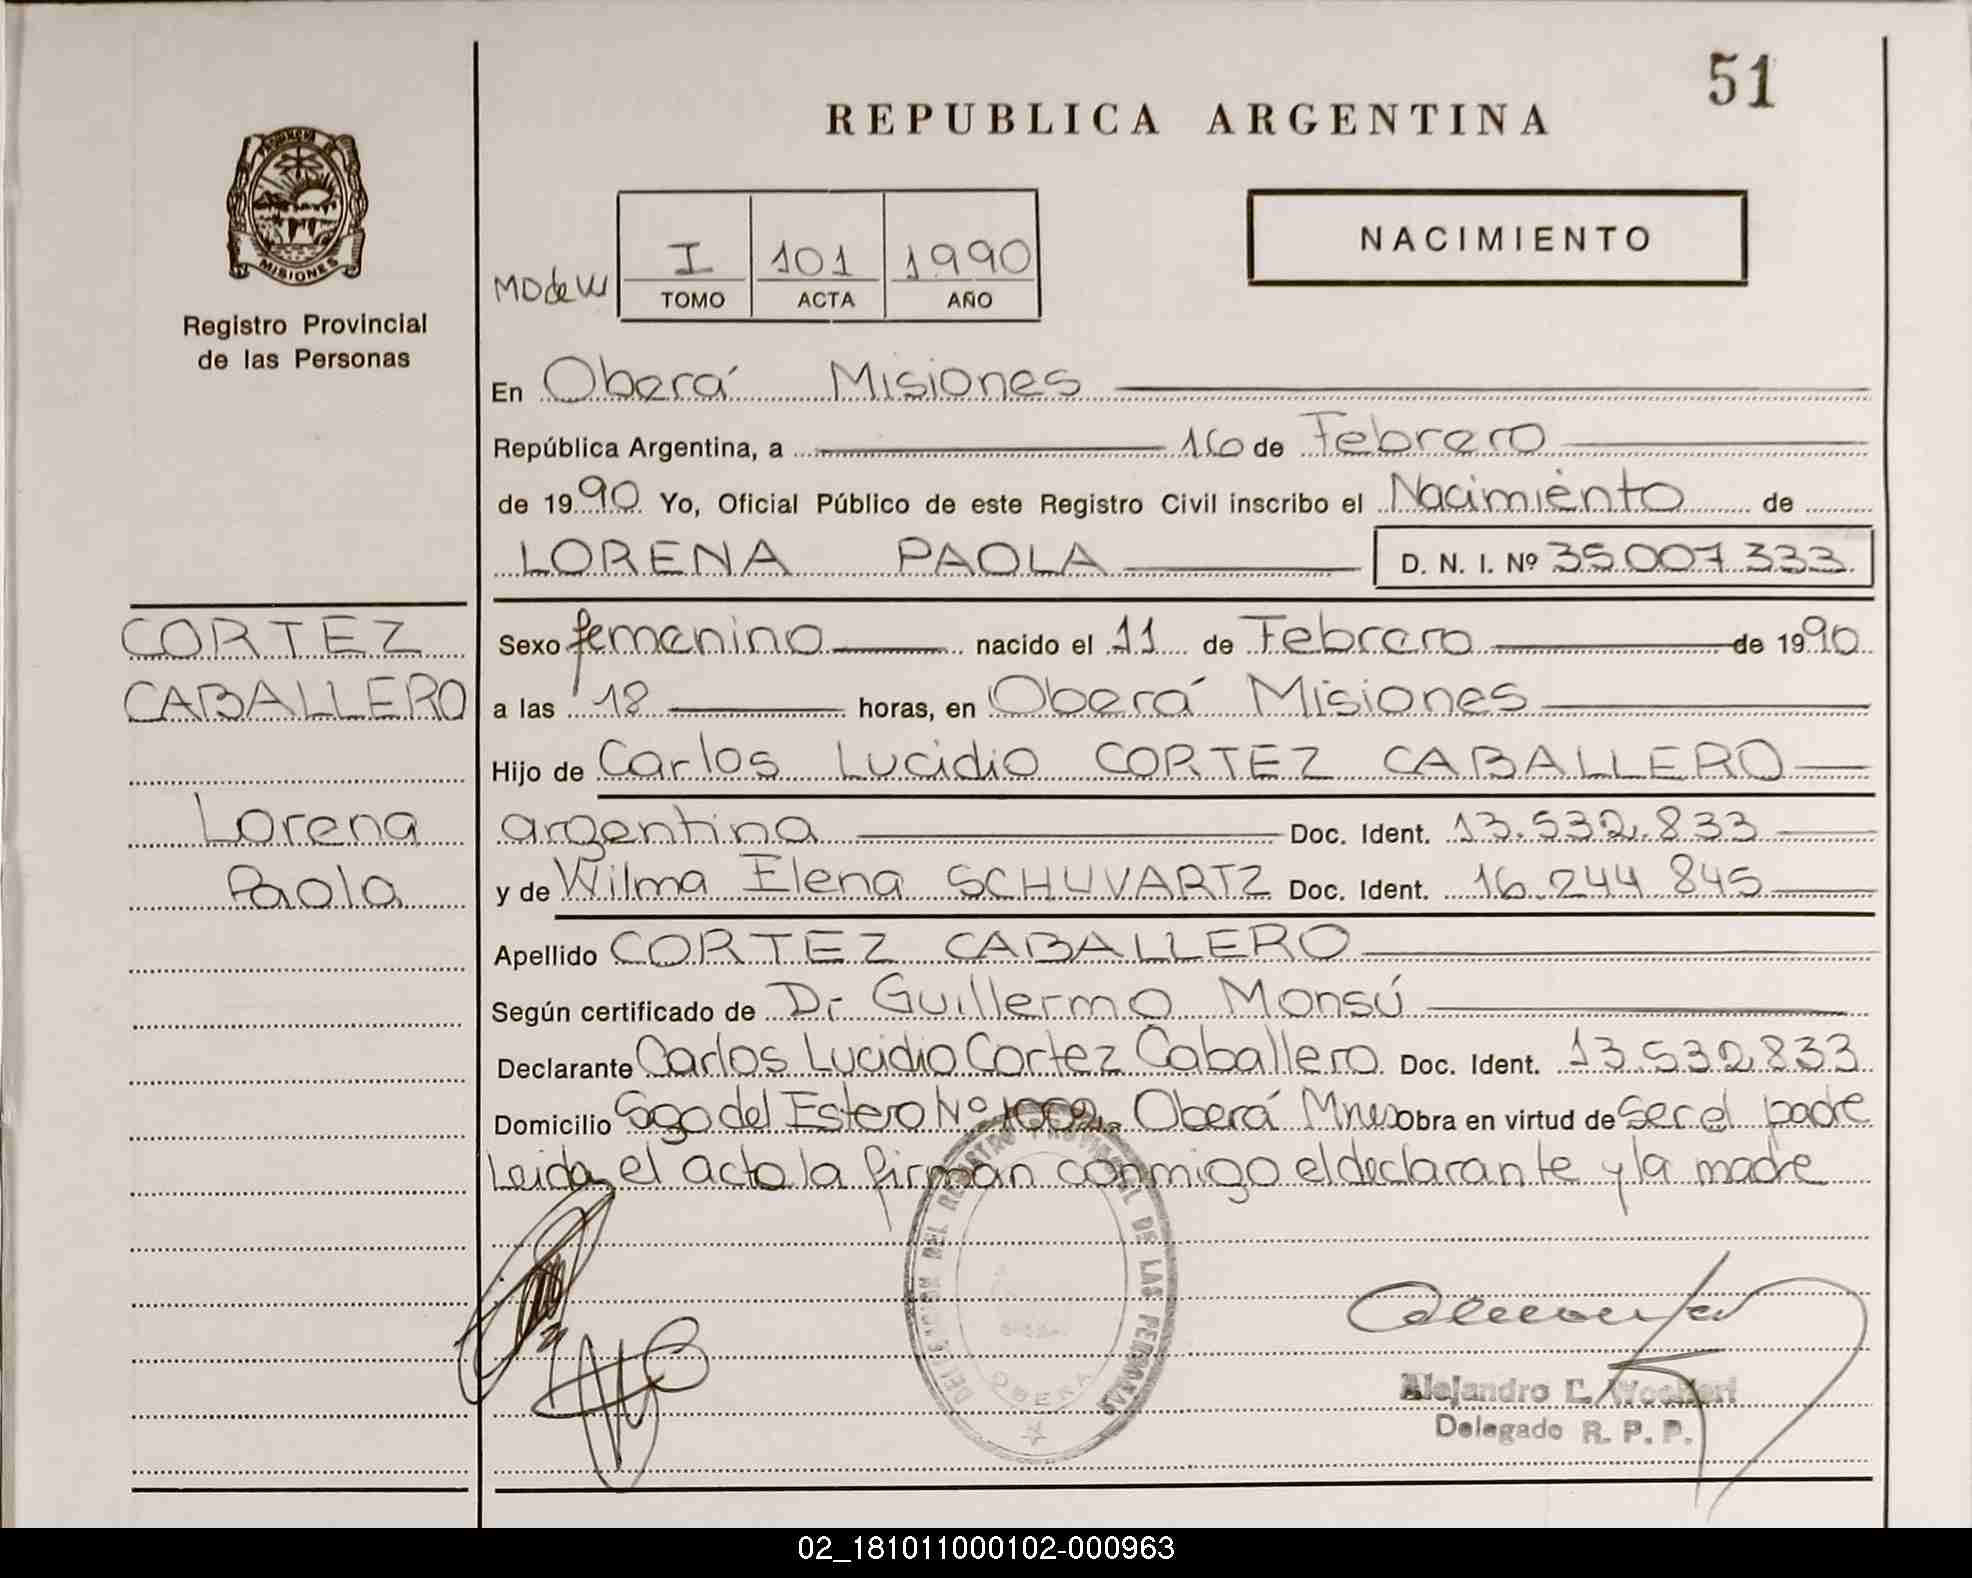 51
REPUBLICA ARGENTINA
PROVINCIA DE
MISIONES
Registro Provincial
de las Personas
NACIMIENTO
I 101 1990
TOMO ACTA AÑO
En Oberá Misiones
República Argentina, a 16 de Febrero
de 1990 Yo, Oficial Público de este Registro Civil inscribo el Nacimiento de
LORENA PAOLA D. N. I. Nº 35.007.333
CORTEZ
CABALLERO
Lorena
Paola
Sexo femenino nacido el 11 de Febrero de 1990
a las 18 horas, en Oberá Misiones
Hijo de Carlos Lucidio CORTEZ CABALLERO
argentina Doc. Ident. 13.532.833
y de Wilma Elena SCHUVARTZ Doc. Ident. 16.244.845
Apellido CORTEZ CABALLERO
Según certificado de Dr Guillermo Monsú
Declarante Carlos Lucidio Cortez Caballero Doc. Ident. 13.532.833
Domicilio Sgo del Estero Nº 1002 Oberá Mnes Obra en virtud de ser el padre
Leida el acta la firman conmigo el declarante y la madre
DELEGACION DEL REGISTRO PROVINCIAL DE LAS PERSONAS
OBERA
Alejandro
Delegado R. P. P.
02_181011000102-000963